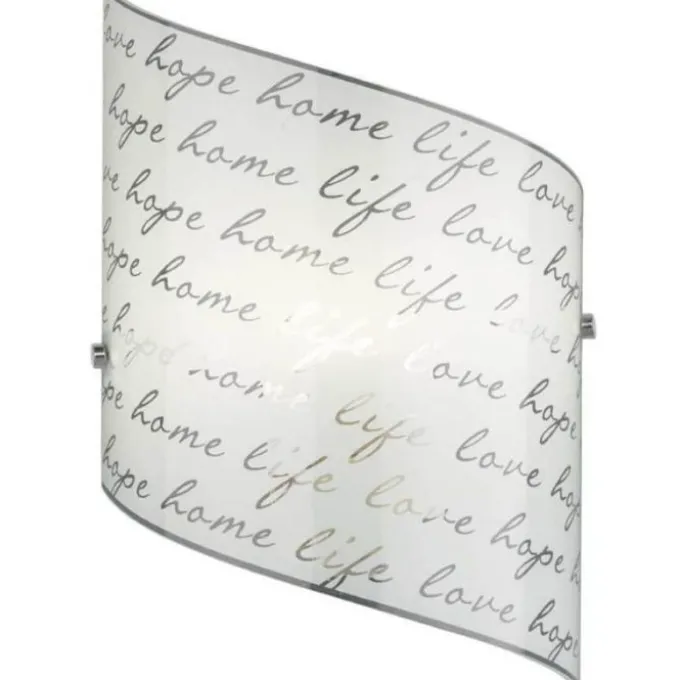 love hope home life love
hope home life love hop
ve hope home life love h
hope home life love hope
e hope home life love hop
pe home life love hope h
hope home life love hope